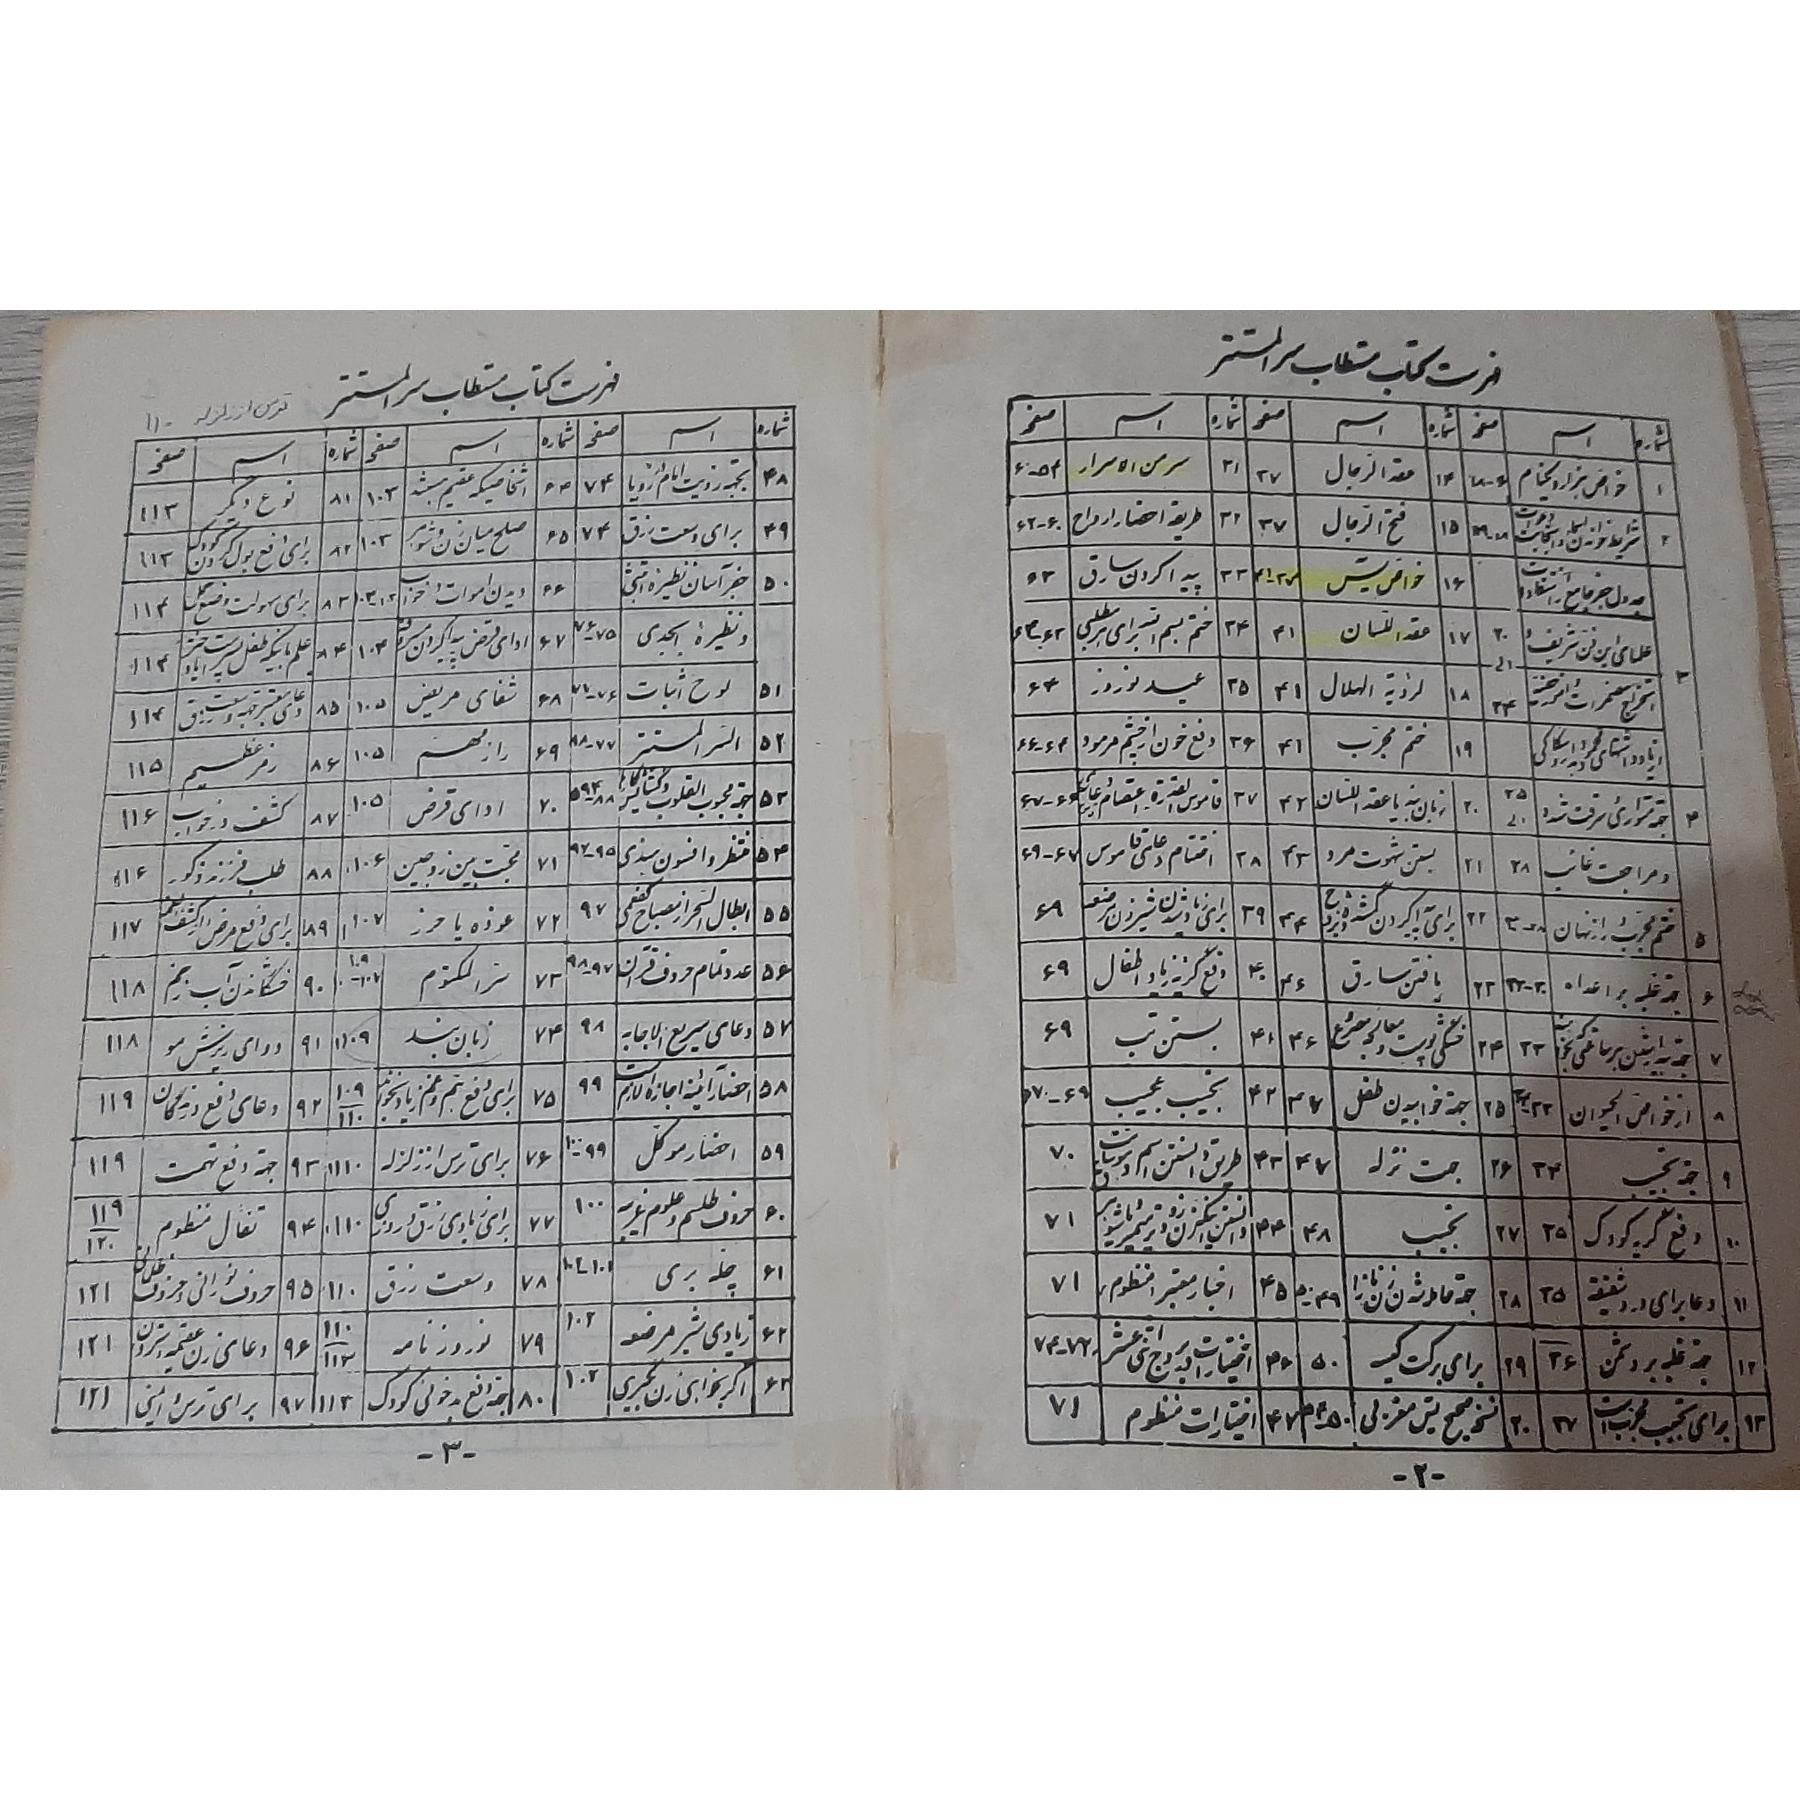 فهرست کتاب مستطاب سر المستتر
شماره اسم صفحه شماره اسم صفحه شماره اسم صفحه
۱ خواص هزار و یکنام ۱۴ عقد الرجال ۲۷ ۳۱ سر من الاسرار ۵۴-۶۰
۲ ۱۵ فتح الرجال ۳۷ ۳۲ طریقه احضار ارواح ۶۰-۶۲
جدول جفر جامع ۱۶ خواص یس ۳۳ پیدا کردن سارق ۶۳
۳ علمای این فن شریف و ۲۰ الی ۱۷ عقد اللسان ۴۱ ۳۴ ختم بسم الله برای هر مطلبی
۲۴ ۱۸ لرؤیة الهلال ۴۱ ۳۵ عید نوروز ۶۴
۱۹ ختم مجرب ۴۱ ۳۶ دفع خون از چشم مرمود ۶۴-۶۶
۴ ۲۵ الی ۲۰ زبان بند یا عقد اللسان ۴۲ ۳۷ قاموس القدرة
و مراجعت غائب ۲۸ ۲۱ بستن شهوت مرد ۴۳ ۳۸ اختتام دعای قاموس ۶۷-۶۹
۵ ختم مجرب و راز نهان ۲۲ برای پیدا کردن گمشده ۴۴ ۳۹ ۶۹
۶ جهة غلبه بر اعداء ۳۰-۳۲ ۲۳ یافتن سارق ۴۶ ۴۰ دفع گریه زیاد اطفال ۶۹
۷ ۳۳ ۲۴ ۴۶ ۴۱ بستن تب ۶۹
۸ از خواص الحیوان ۲۵ جهة خوابیدن طفل ۴۷ ۴۲ تحبیب عجیب ۶۹-۷۰
۹ جهة تحبیب ۳۴ ۲۶ جهت نزله ۴۷ ۴۳ ۷۰
۱۰ دفع گریه کودک ۳۵ ۲۷ تحبیب ۴۸ ۴۴ ۷۱
۱۱ دعا برای درد شقیقه ۳۵ ۲۸ جهة حامله شدن زن نازا ۴۵ اخبار معتبر منظوم ۷۱
۱۲ جهة غلبه بر دشمن ۳۶ ۲۹ برای برکت کیسه ۵۰ ۴۶ اختیارات البروج اثنی عشر ۷۲-۷۴
۱۳ برای تحبیب مجرب است ۳۷ ۳۰ نسخه صحیح یس مغربی ۴۷ اختیارات منظوم ۷۱
-۲-
فهرست کتاب مستطاب سر المستتر
ترس از زلزله ۱۱۰
شماره اسم صفحه شماره اسم صفحه شماره اسم صفحه
۴۸ ۷۴ ۶۴ اشخاصیکه عقیم میباشند ۱۰۳ ۸۱ نوع دیگر ۱۱۳
۴۹ برای وسعت رزق ۷۴ ۶۵ صلح میان زن و شوهر ۱۰۳ ۸۲ برای دفع بول کردن کودک ۱۱۳
۵۰ جفر آسان نظیره ابتثی ۶۶ دیدن اموات در خواب ۸۳ برای سهولت وضع حمل ۱۱۴
و نظیرهٔ ابجدی ۷۵-۷۶ ۶۷ ۱۰۴ ۸۴ ۱۱۴
۵۱ لوح اثبات ۷۶-۷۷ ۶۸ شفای مریض ۱۰۵ ۸۵ دعای معتبر جهة وسعت رزق ۱۱۴
۵۲ السر المستتر ۷۷-۸۸ ۶۹ راز مهم ۱۰۵ ۸۶ رمز عظیم ۱۱۵
۵۳ جهة محبوب القلوب ۷۰ ادای قرض ۱۰۵ ۸۷ کشف در خواب ۱۱۶
۵۴ منتظر و افسون بندی ۹۵-۹۷ ۷۱ محبت بین زوجین ۱۰۶ ۸۸ طلب فرزند ذکور ۱۱۶
۵۵ ابطال السحر از مصباح کفعمی ۹۷ ۷۲ عوذه یا حرز ۱۰۷ ۸۹ برای دفع مرض ۱۱۷
۵۶ عدد تمام حروف قرآن ۹۷-۹۸ ۷۳ سر المکتوم ۱۰۷-۱۰۹ ۹۰ خشکاندن آب زخم ۱۱۸
۵۷ دعای سریع الاجابه ۹۸ ۷۴ زبان بند ۱۰۹ ۹۱ دوای ریزش مو ۱۱۸
۵۸ احضار آئینه اجازه لازم است ۹۹ ۷۵ برای دفع هم و غم ۱۰۹ ۱۱۰ ۹۲ دعای دفع دیدگان ۱۱۹
۵۹ احضار موکل ۹۹-۱۰۰ ۷۶ برای ترس از زلزله ۱۱۰ ۹۳ جهة دفع تهمت ۱۱۹
۶۰ حروف طلسم و علوم غریبه ۱۰۰ ۷۷ برای زیادی رزق و روزی ۱۱۰ ۹۴ تفأل منظوم ۱۱۹ ۱۲۰
۶۱ چله بری ۱۰۱-۱۰۲ ۷۸ وسعت رزق ۱۱۰ ۹۵ حروف نورانی و حروف ظلمانی ۱۲۱
۶۲ زیادی شیر مرضعه ۱۰۲ ۷۹ نوروز نامه ۱۱۰ ۱۱۳ ۹۶ دعای زن عقیمه ۱۲۱
۶۳ اگر بخواهی زن بگیری ۱۰۲ ۸۰ جهة دفع بدخوئی کودک ۱۱۳ ۹۷ برای ترس و ایمنی ۱۲۱
-۳-